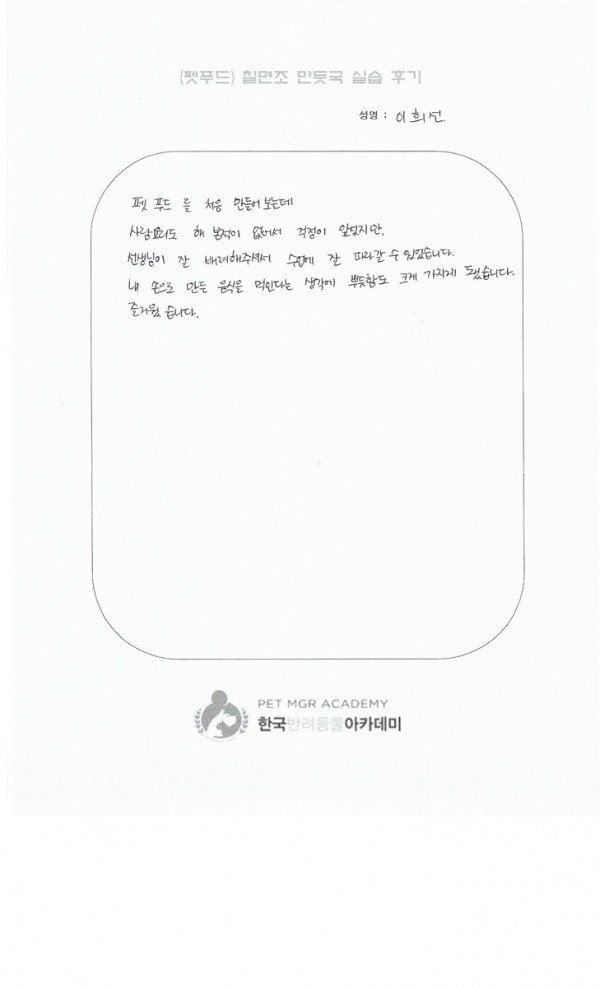 (펫푸드) 칠면조 만둣국 실습 후기
성명 : 이희선
펫 푸드 를 처음 만들어 보는데
사람요리도 해 본적이 없어서 걱정이 앞섰지만,
선생님이 잘 배려해주셔서 수업에 잘 따라갈 수 있었습니다.
내 손으로 만든 음식을 먹인다는 생각에 뿌듯함도 크게 가지게 됐습니다.
즐거웠 습니다.
PET MGR ACADEMY
한국반려동물아카데미